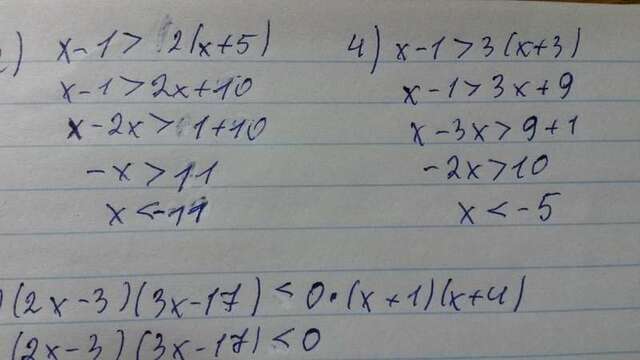 ) x-1> 2(x+5)
x-1>2x+10
x-2x> 1+10
-x>11
x<-11
4) x-1>3(x+3)
x-1>3x+9
x-3x>9+1
-2x>10
x<-5
)(2x-3)(3x-17)<0·(x+1)(x+4)
(2x-3)(3x-17)<0